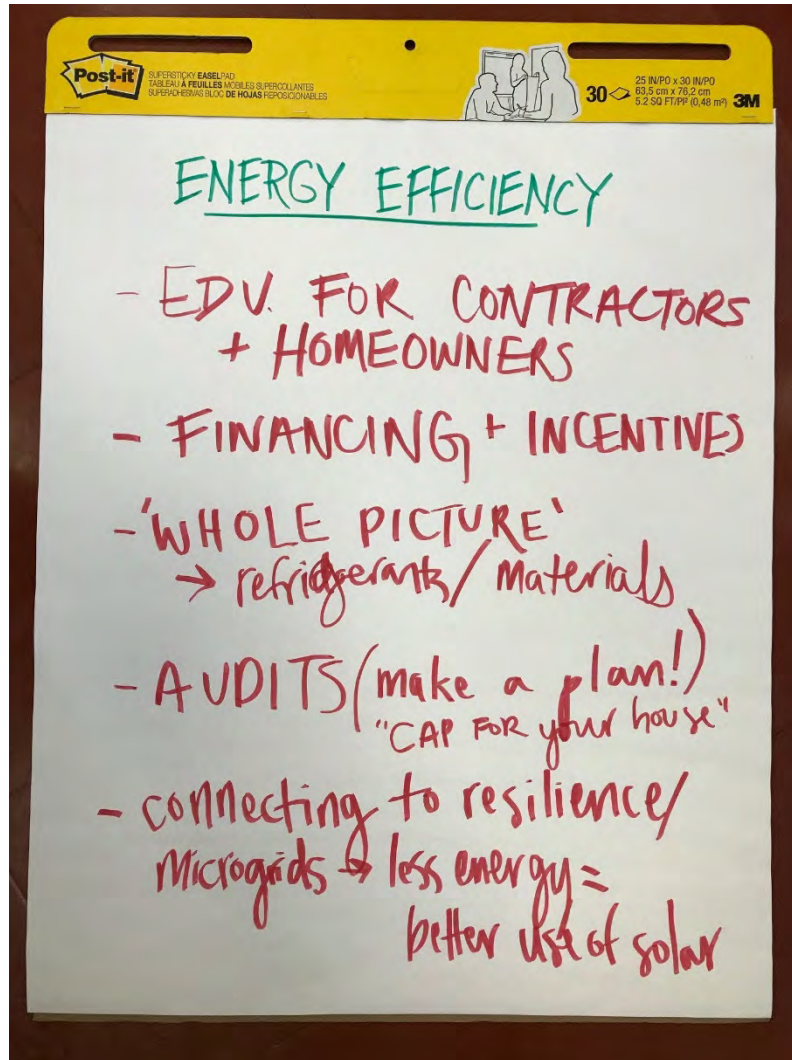 Post-it
SUPERSTICKY EASELPAD
TABLEAU À FEUILLES MOBILES SUPERCOLLANTES
SUPERADHESIVAS BLOC DE HOJAS REPOSICIONABLES
30
25 IN/PO x 30 IN/PO
63,5 cm x 76,2 cm
5.2 SQ FT/PP (0,48 m²)
3M
ENERGY EFFICIENCY
- EDU. FOR CONTRACTORS
+ HOMEOWNERS
- FINANCING + INCENTIVES
- 'WHOLE PICTURE'
→ refridgerants/materials
- AUDITS (make a plan!)
"CAP FOR your house"
- connecting to resilience/
Microgrids → less energy =
better use of solar